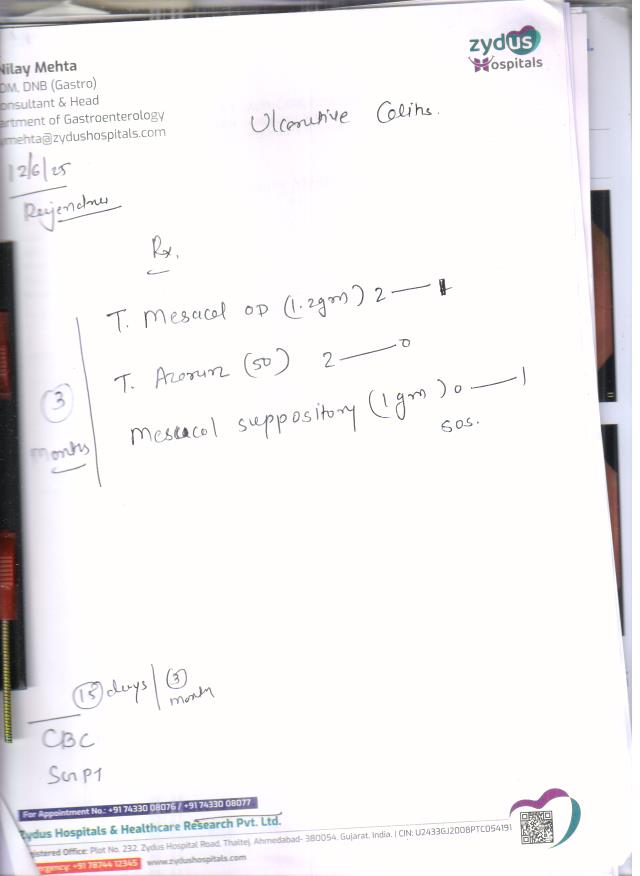 zydus
Hospitals
Nilay Mehta
DM, DNB (Gastro)
onsultant & Head
artment of Gastroenterology
mehta@zydushospitals.com
Ulcerative Colitis.
12/6/25
Rajendra
Rx.
T. Mesacol OD (1.2gm) 2 — 1
T. Azoran (50) 2 — 0
Mesacol suppository (1gm) 0 — 1
SOS.
3
months
15 days / 3
month
CBC
SGPT
For Appointment No.: +91 74330 08076 / +91 74330 08077
Zydus Hospitals & Healthcare Research Pvt. Ltd.
gistered Office: Plot No. 232, Zydus Hospital Road, Thaltej, Ahmedabad- 380054, Gujarat, India. | CIN: U2433GJ2008PTC054191
rgency: +91 78744 12345 www.zydushospitals.com